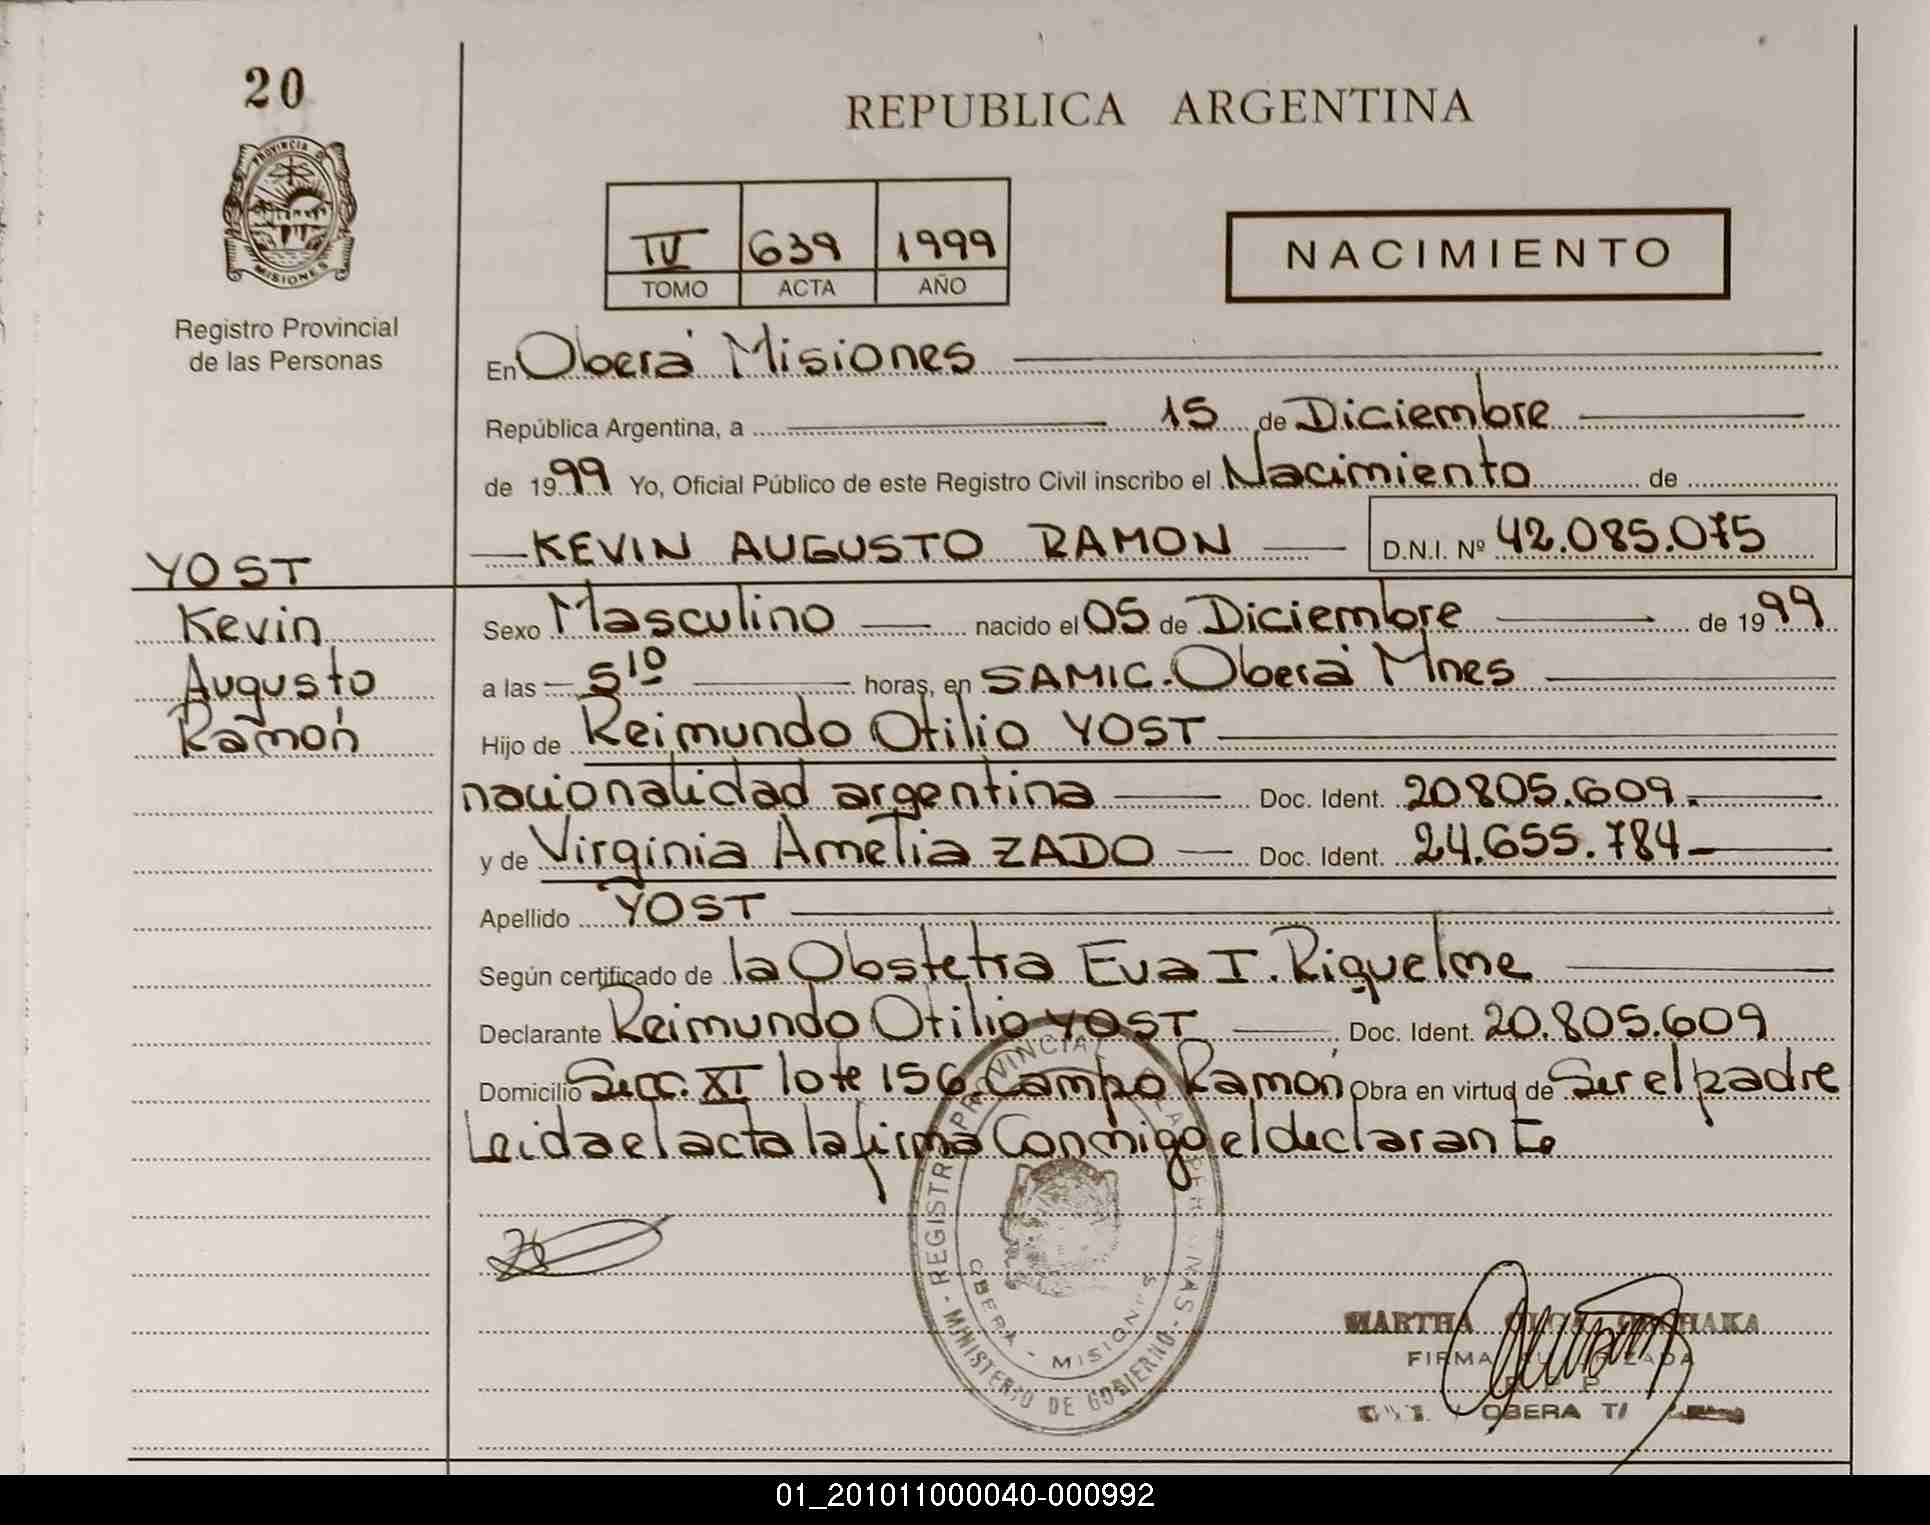 20
PROVINCIA DE
MISIONES
Registro Provincial
de las Personas
REPUBLICA ARGENTINA
IV 639 1999
TOMO ACTA AÑO
NACIMIENTO
En Oberá Misiones
República Argentina, a 15 de Diciembre
de 1999 Yo, Oficial Público de este Registro Civil inscribo el Nacimiento de
KEVIN AUGUSTO RAMON D.N.I. Nº 42.085.075
YOST
Kevin
Augusto
Ramón
Sexo Masculino nacido el 05 de Diciembre de 1999
a las 5 10 horas, en SAMIC. Oberá Mnes
Hijo de Reimundo Otilio YOST
nacionalidad argentina Doc. Ident. 20805.609.
y de Virginia Amelia ZADO Doc. Ident. 24.655.784
Apellido YOST
Según certificado de la Obstetra Eva I. Riquelme
Declarante Reimundo Otilio YOST Doc. Ident. 20.805.609
Domicilio Secc. XI lote 156 Campo Ramón Obra en virtud de Ser el padre
Leida el acta la firma Conmigo el declarante
REGISTRO PROVINCIAL DE LAS PERSONAS
MINISTERIO DE GOBIERNO
OBERA - MISIONES
MARTHA
FIRMA AUTORIZADA
OBERA
01_201011000040-000992